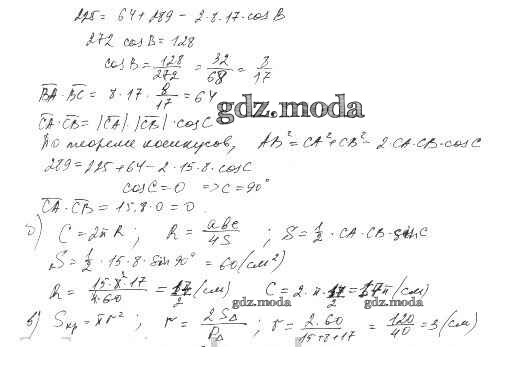 225 = 64 + 289 - 2·8·17·cos B
272 cos B = 128
cos B = 128/272 = 32/68 = 8/17
BA·BC = 8·17·8/17 = 64
gdz.moda
CA·CB = |CA|·|CB|·cos C
По теореме косинусов, AB² = CA² + CB² - 2·CA·CB·cos C
289 = 225 + 64 - 2·15·8·cos C
cos C = 0 => C = 90°
CA·CB = 15·8·0 = 0
б) C = 2πR ; R = abc/4S ; S = 1/2·CA·CB·sin C
S = 1/2·15·8·sin 90° = 60 (см²)
R = 15·8·17/4·60 = 17/2 (см) C = 2·π·17/2 = 17π (см)
gdz.moda gdz.moda
в) Sкр = πr² ; r = 2S△/P△ ; r = 2·60/15+8+17 = 120/40 = 3 (см)